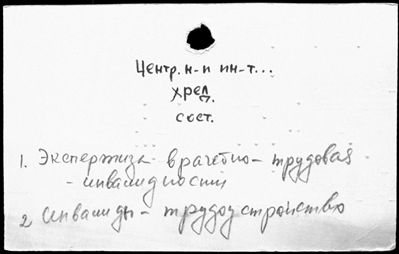 Центр. н-и ин-т...
хрел.
сост.
1. Экспертиза врачебно-трудовая
- инвалидности
2 Инвалиды - трудоустройство